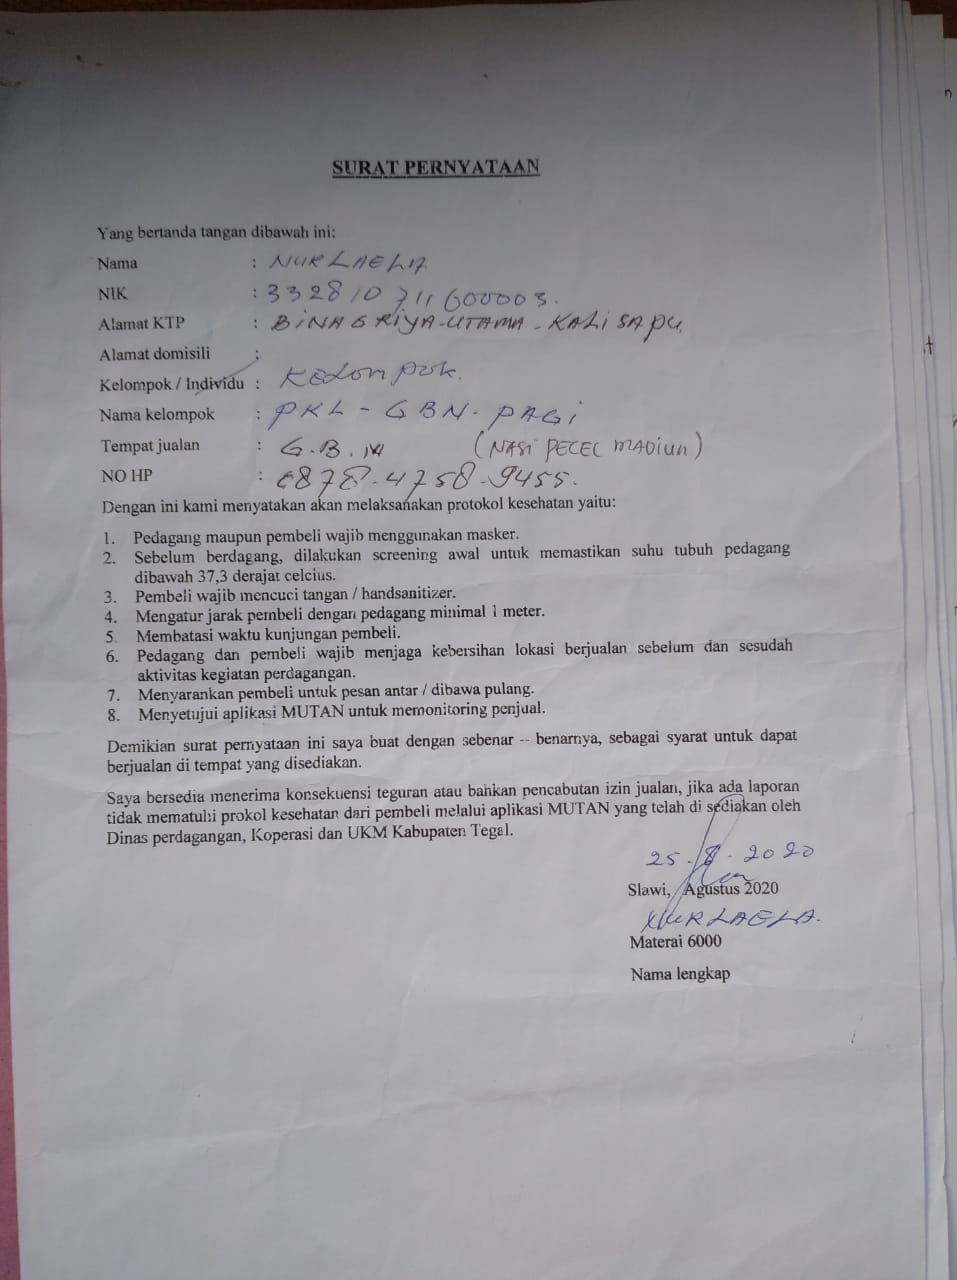 SURAT PERNYATAAN
Yang bertanda tangan dibawah ini:
Nama : NURLAELA
NIK : 332810711600003.
Alamat KTP : BINA GRIYA-UTAMA-KALISAPU
Alamat domisili :
Kelompok / Individu : Kelompok.
Nama kelompok : PKL - GBN - PAGI
Tempat jualan : G.B.N (NASI PECEL MADIUN)
NO HP : 0878.4758.9455.
Dengan ini kami menyatakan akan melaksanakan protokol kesehatan yaitu:
1. Pedagang maupun pembeli wajib menggunakan masker.
2. Sebelum berdagang, dilakukan screening awal untuk memastikan suhu tubuh pedagang
dibawah 37,3 derajat celcius.
3. Pembeli wajib mencuci tangan / handsanitizer.
4. Mengatur jarak pembeli dengan pedagang minimal 1 meter.
5. Membatasi waktu kunjungan pembeli.
6. Pedagang dan pembeli wajib menjaga kebersihan lokasi berjualan sebelum dan sesudah
aktivitas kegiatan perdagangan.
7. Menyarankan pembeli untuk pesan antar / dibawa pulang.
8. Menyetujui aplikasi MUTAN untuk memonitoring penjual.
Demikian surat pernyataan ini saya buat dengan sebenar -- benarnya, sebagai syarat untuk dapat
berjualan di tempat yang disediakan.
Saya bersedia menerima konsekuensi teguran atau bahkan pencabutan izin jualan, jika ada laporan
tidak mematuhi prokol kesehatan dari pembeli melalui aplikasi MUTAN yang telah di sediakan oleh
Dinas perdagangan, Koperasi dan UKM Kabupaten Tegal.
25.8.2020
Slawi, Agustus 2020
NURLAELA.
Materai 6000
Nama lengkap